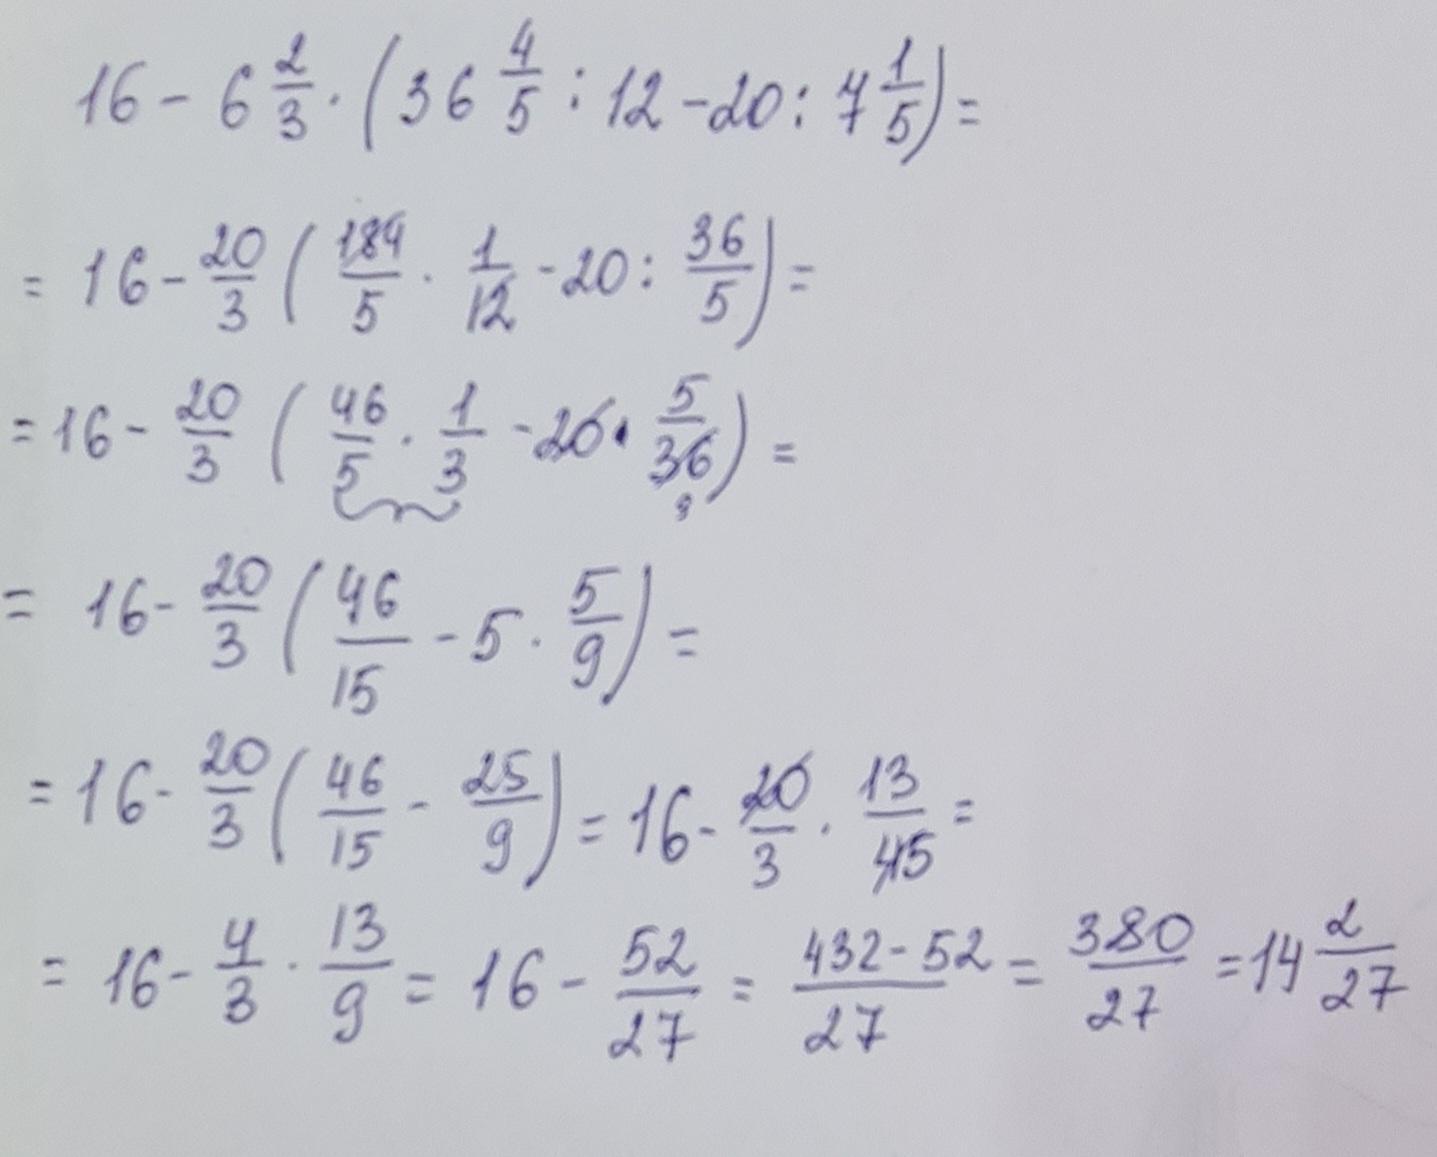 16 - 6 2/3 · (36 4/5 : 12 - 20 : 7 1/5) =
= 16 - 20/3 (184/5 · 1/12 - 20 : 36/5) =
= 16 - 20/3 (46/5 · 1/3 - 20 · 5/36) =
9
= 16 - 20/3 (46/15 - 5 · 5/9) =
= 16 - 20/3 (46/15 - 25/9) = 16 - 20/3 · 13/45 =
= 16 - 4/3 · 13/9 = 16 - 52/27 = (432 - 52)/27 = 380/27 = 14 2/27